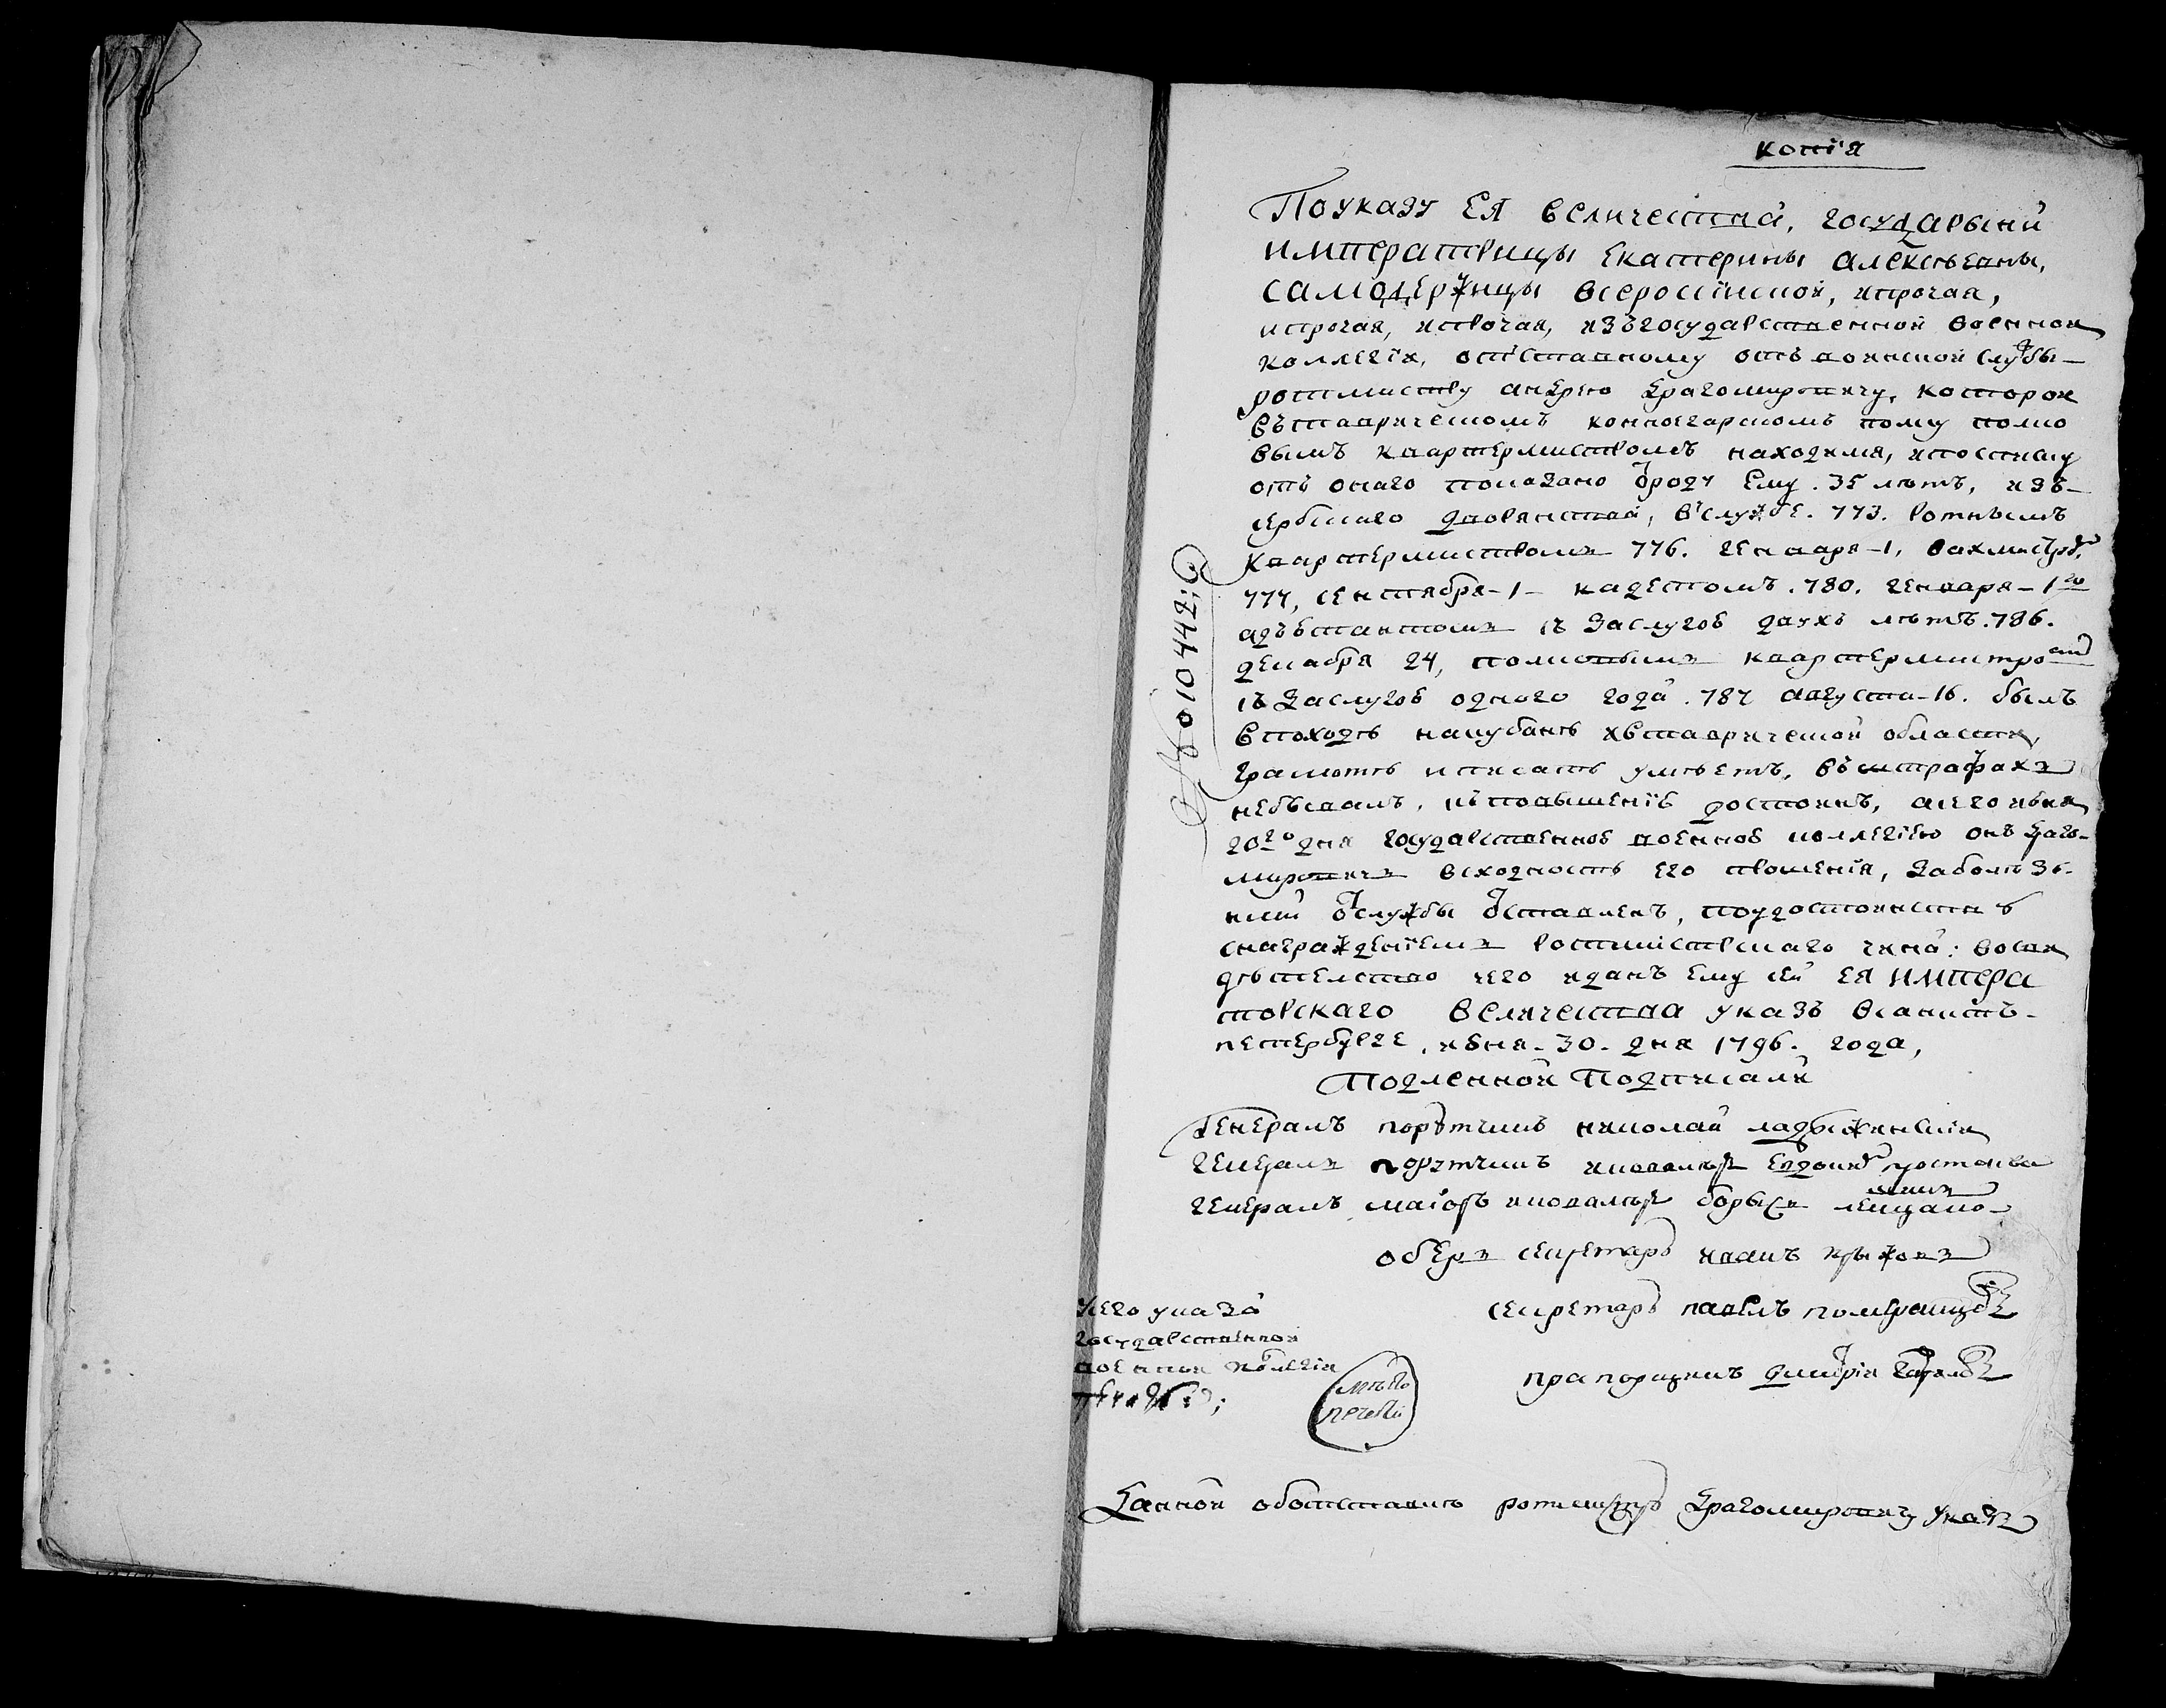 копія
По указу ЕЯ величества, государыни
императрицы Екатерины алексѣевны,
самодержицы всеросійской, ипрочая,
ипрочая, ипрочая, изъ государственной военной
коллегіи, отставному отъ воинской службы
ротмистру андрею драгомировичу, которой
въ таврическомъ конноегарскомъ полку полко
вымъ квартермистромъ находился, ипосписку
отъ онаго показано отроду ему 35 летъ, изъ
сербскаго дворянства, в службе. 773. ротнымъ
квартермистромъ 776. генваря-1, вахмистро
777, сентября-1- кадетомъ. 780. генваря-1го
адъютантомъ съ заслугою двухъ летъ. 786.
декабря 24, полковымъ квартермистромъ
съ заслугою одного года. 787 августа-16. былъ
в походѣ накубань ивтаврической области,
грамоте иписать умѣетъ, въ штрафахъ
небывалъ, къ повышенію достоинъ, а сего июня
20го дня государственною военною коллегіею онъ драго-
мировичъ всходность его прошенія, за болѣзнь-
ми от службы отставленъ, по удостоинству
снагражденіемъ ротмистрскаго чина: во сви
дѣтельство чего иданъ ему сей ЕЯ импера
торскаго величества указъ всанктъ-
петербурге, июня-30-дня 1796. года,
Подленной Подписали
Генералъ порутчикъ николай ладыженскій
генералъ порутчикъ икавалеръ Евдоки
генералъ маіоръ икавалеръ борисъ
оберъ секретарь иванъ крыжовъ
секретарь павелъ померанцов
прапорщикъ дмитрій
У сего указа
государственной
военной колегіи
печать;
мѣсто
печати
Данной об отставкѣ ротмистру драгомировичу указъ